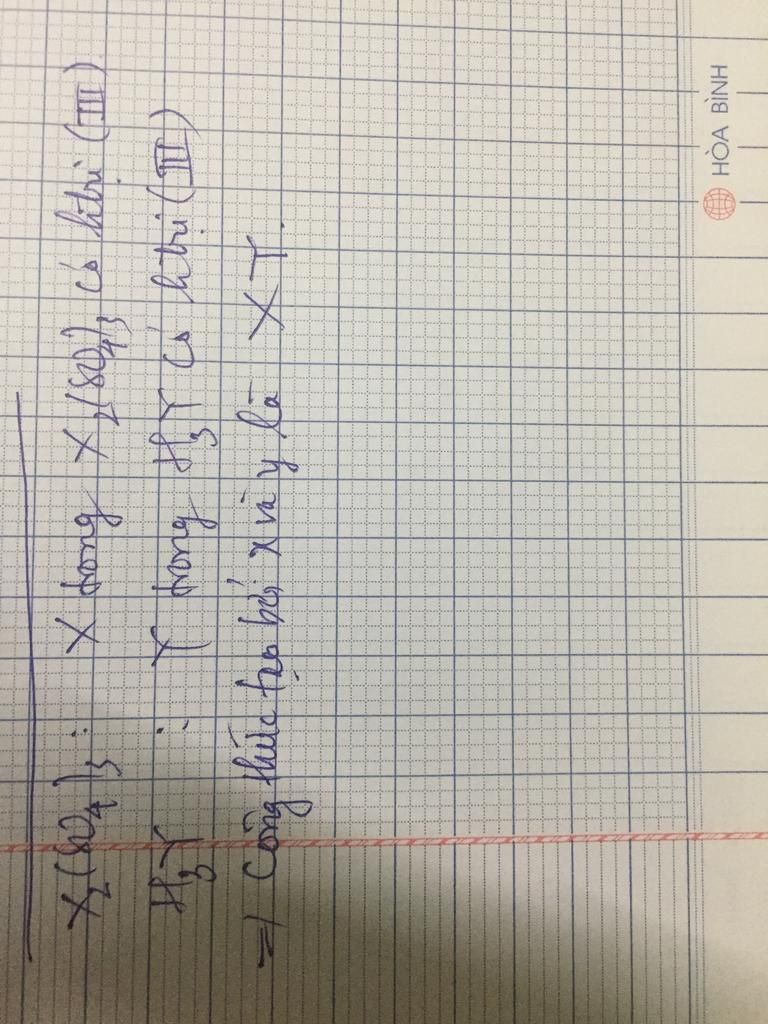 X₂(SO₄)₃ : X trong X₂(SO₄)₃ có htrị (III).
H₃Y : Y trong H₃Y có htrị (III)
=> Công thức tạo bởi x và y là XY.
HÒA BÌNH